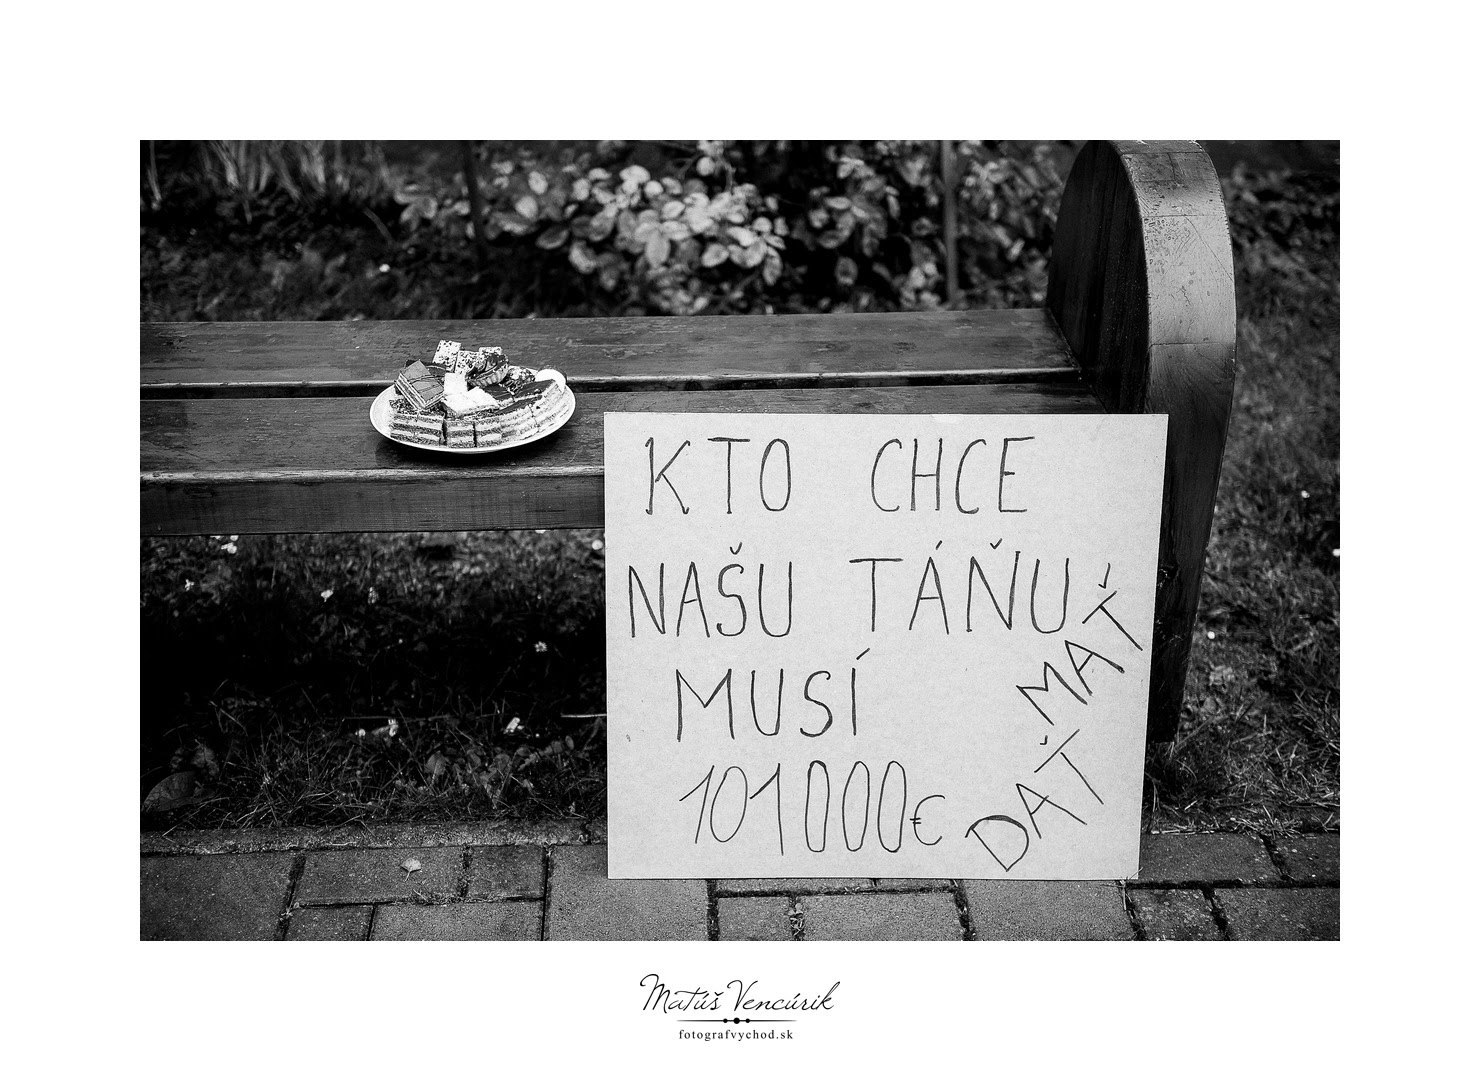 KTO CHCE
NAŠU TÁŇU
MUSÍ
101000€
DAŤ MAŤ
Matúš Vencúrik
fotografvychod.sk